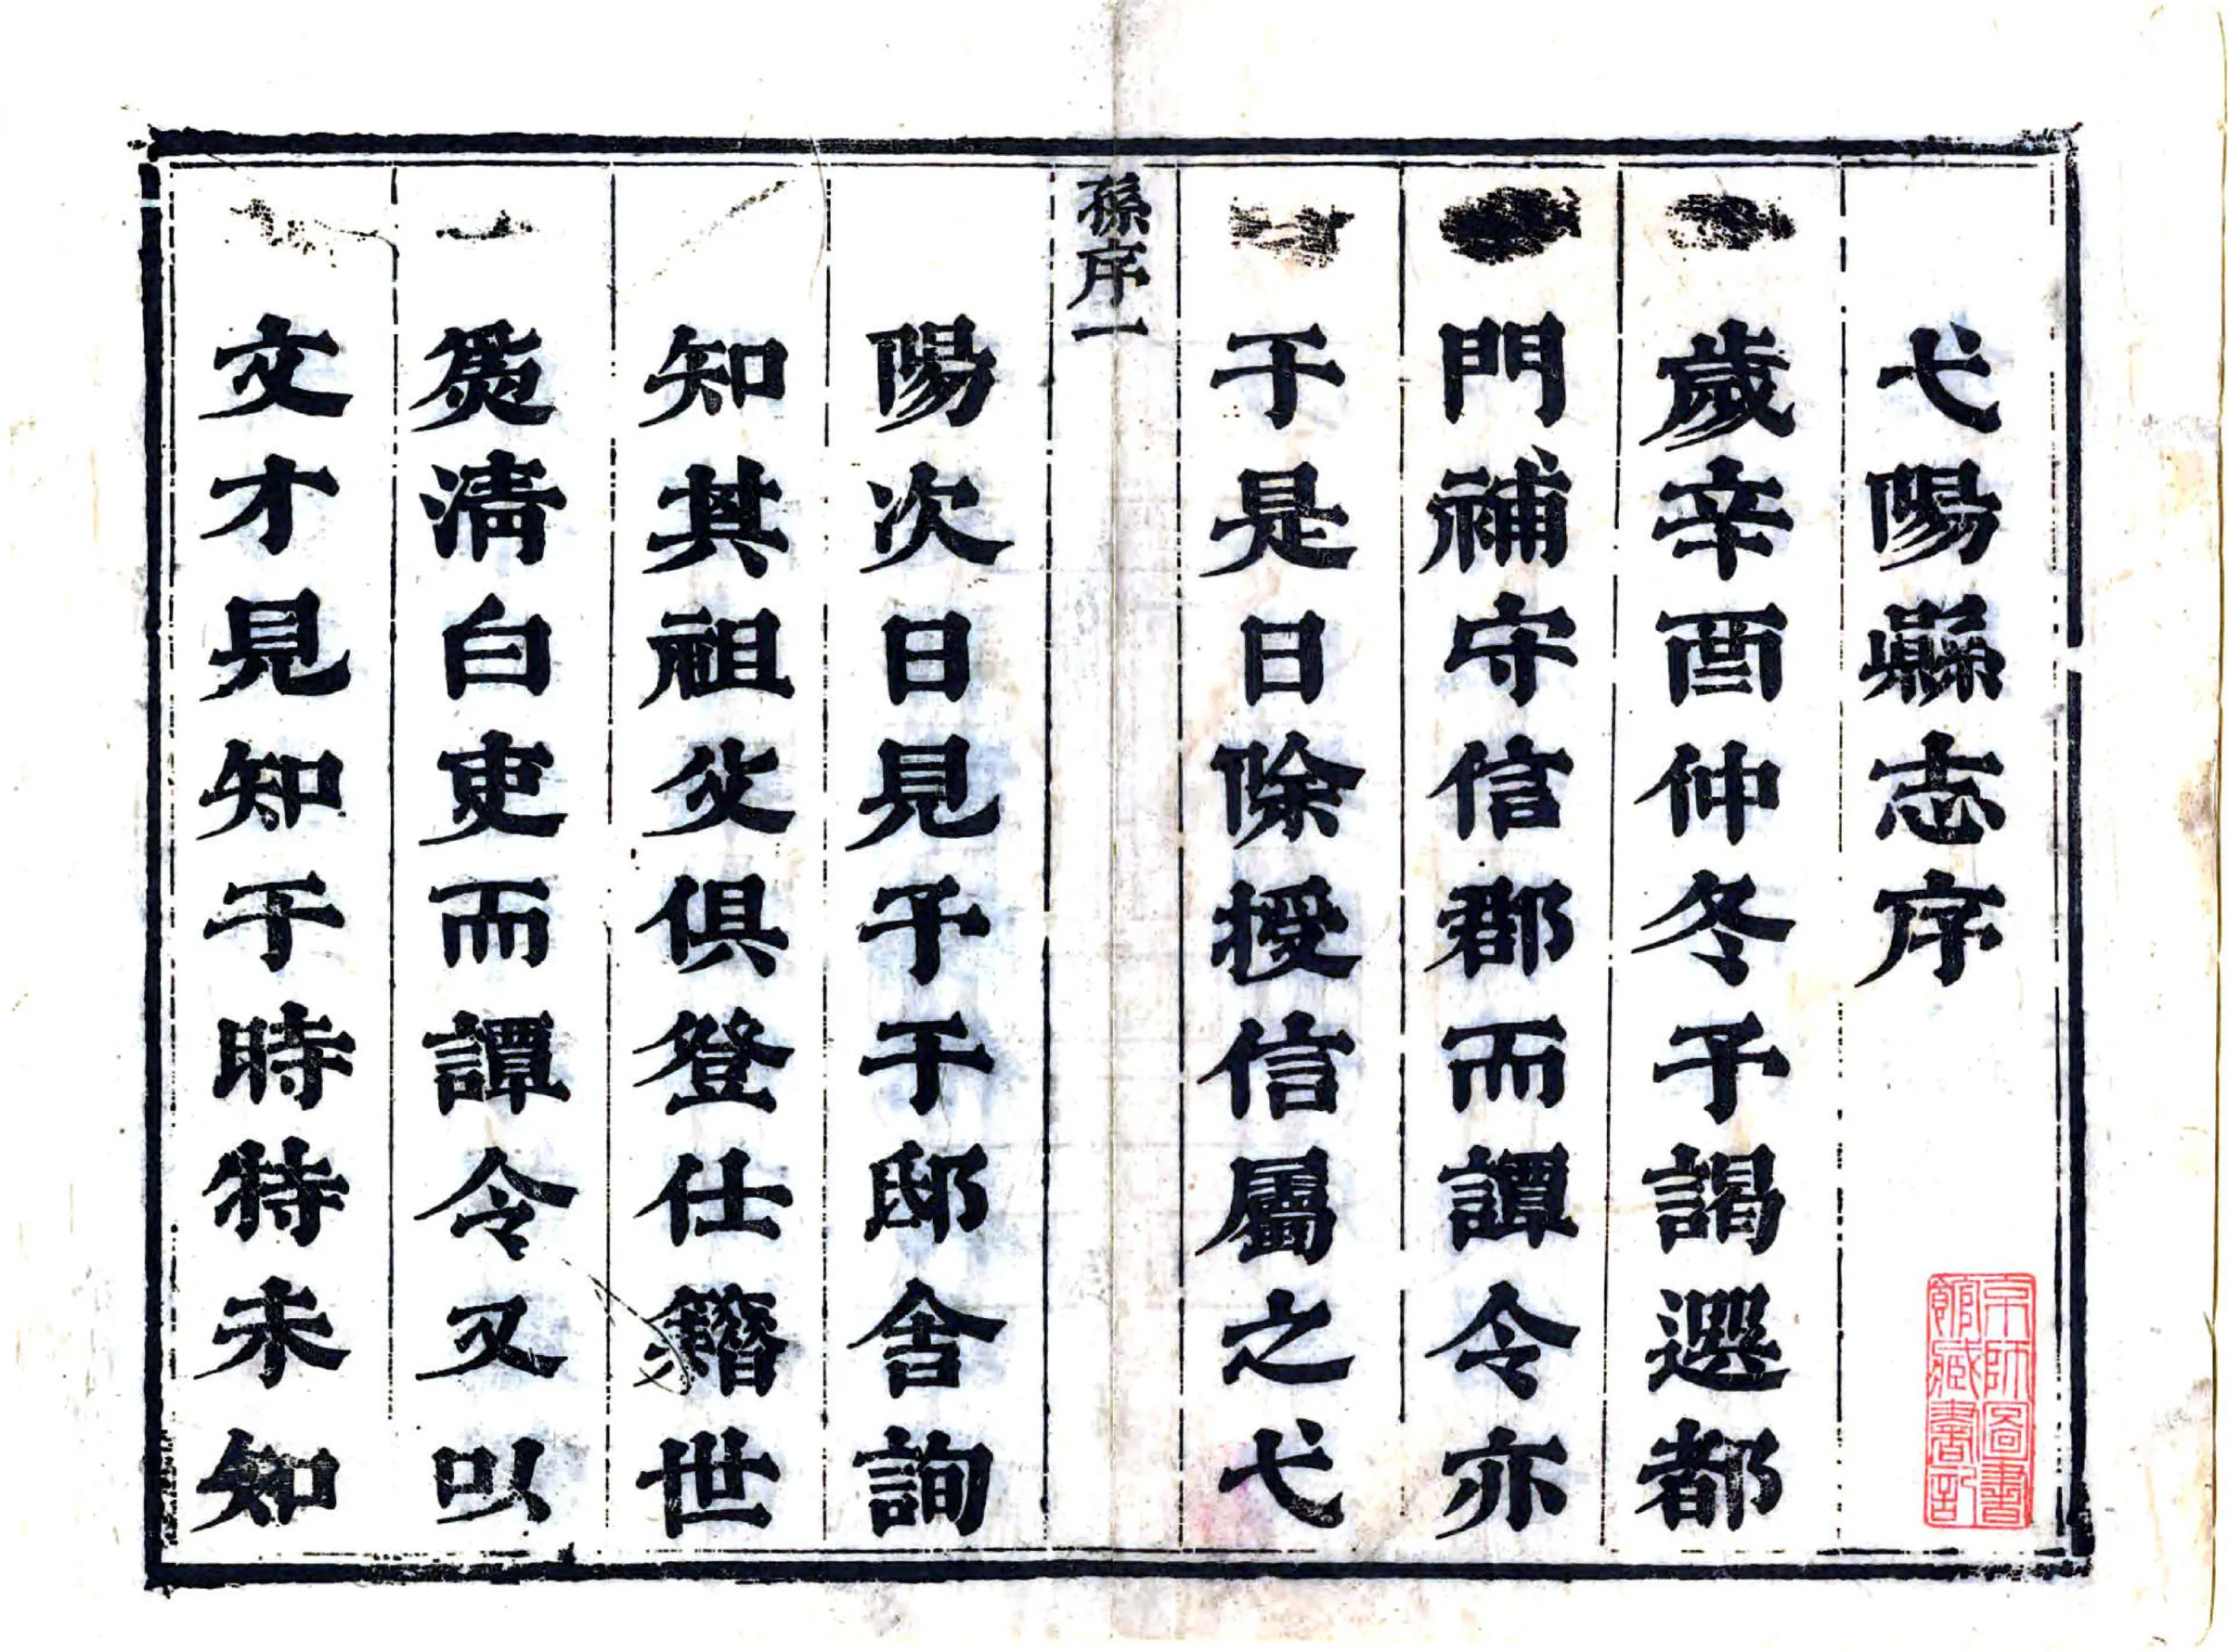 弋陽縣志序
歲辛酉仲冬予謁選都
門補守信郡而譚令亦
于是日除授信屬之弋
孫序一
陽次日見予于邸舍詢
知其祖父俱登仕籍世
爲淸白吏而譚令又以
文才見知于時特未知
京師圖書
館藏書記